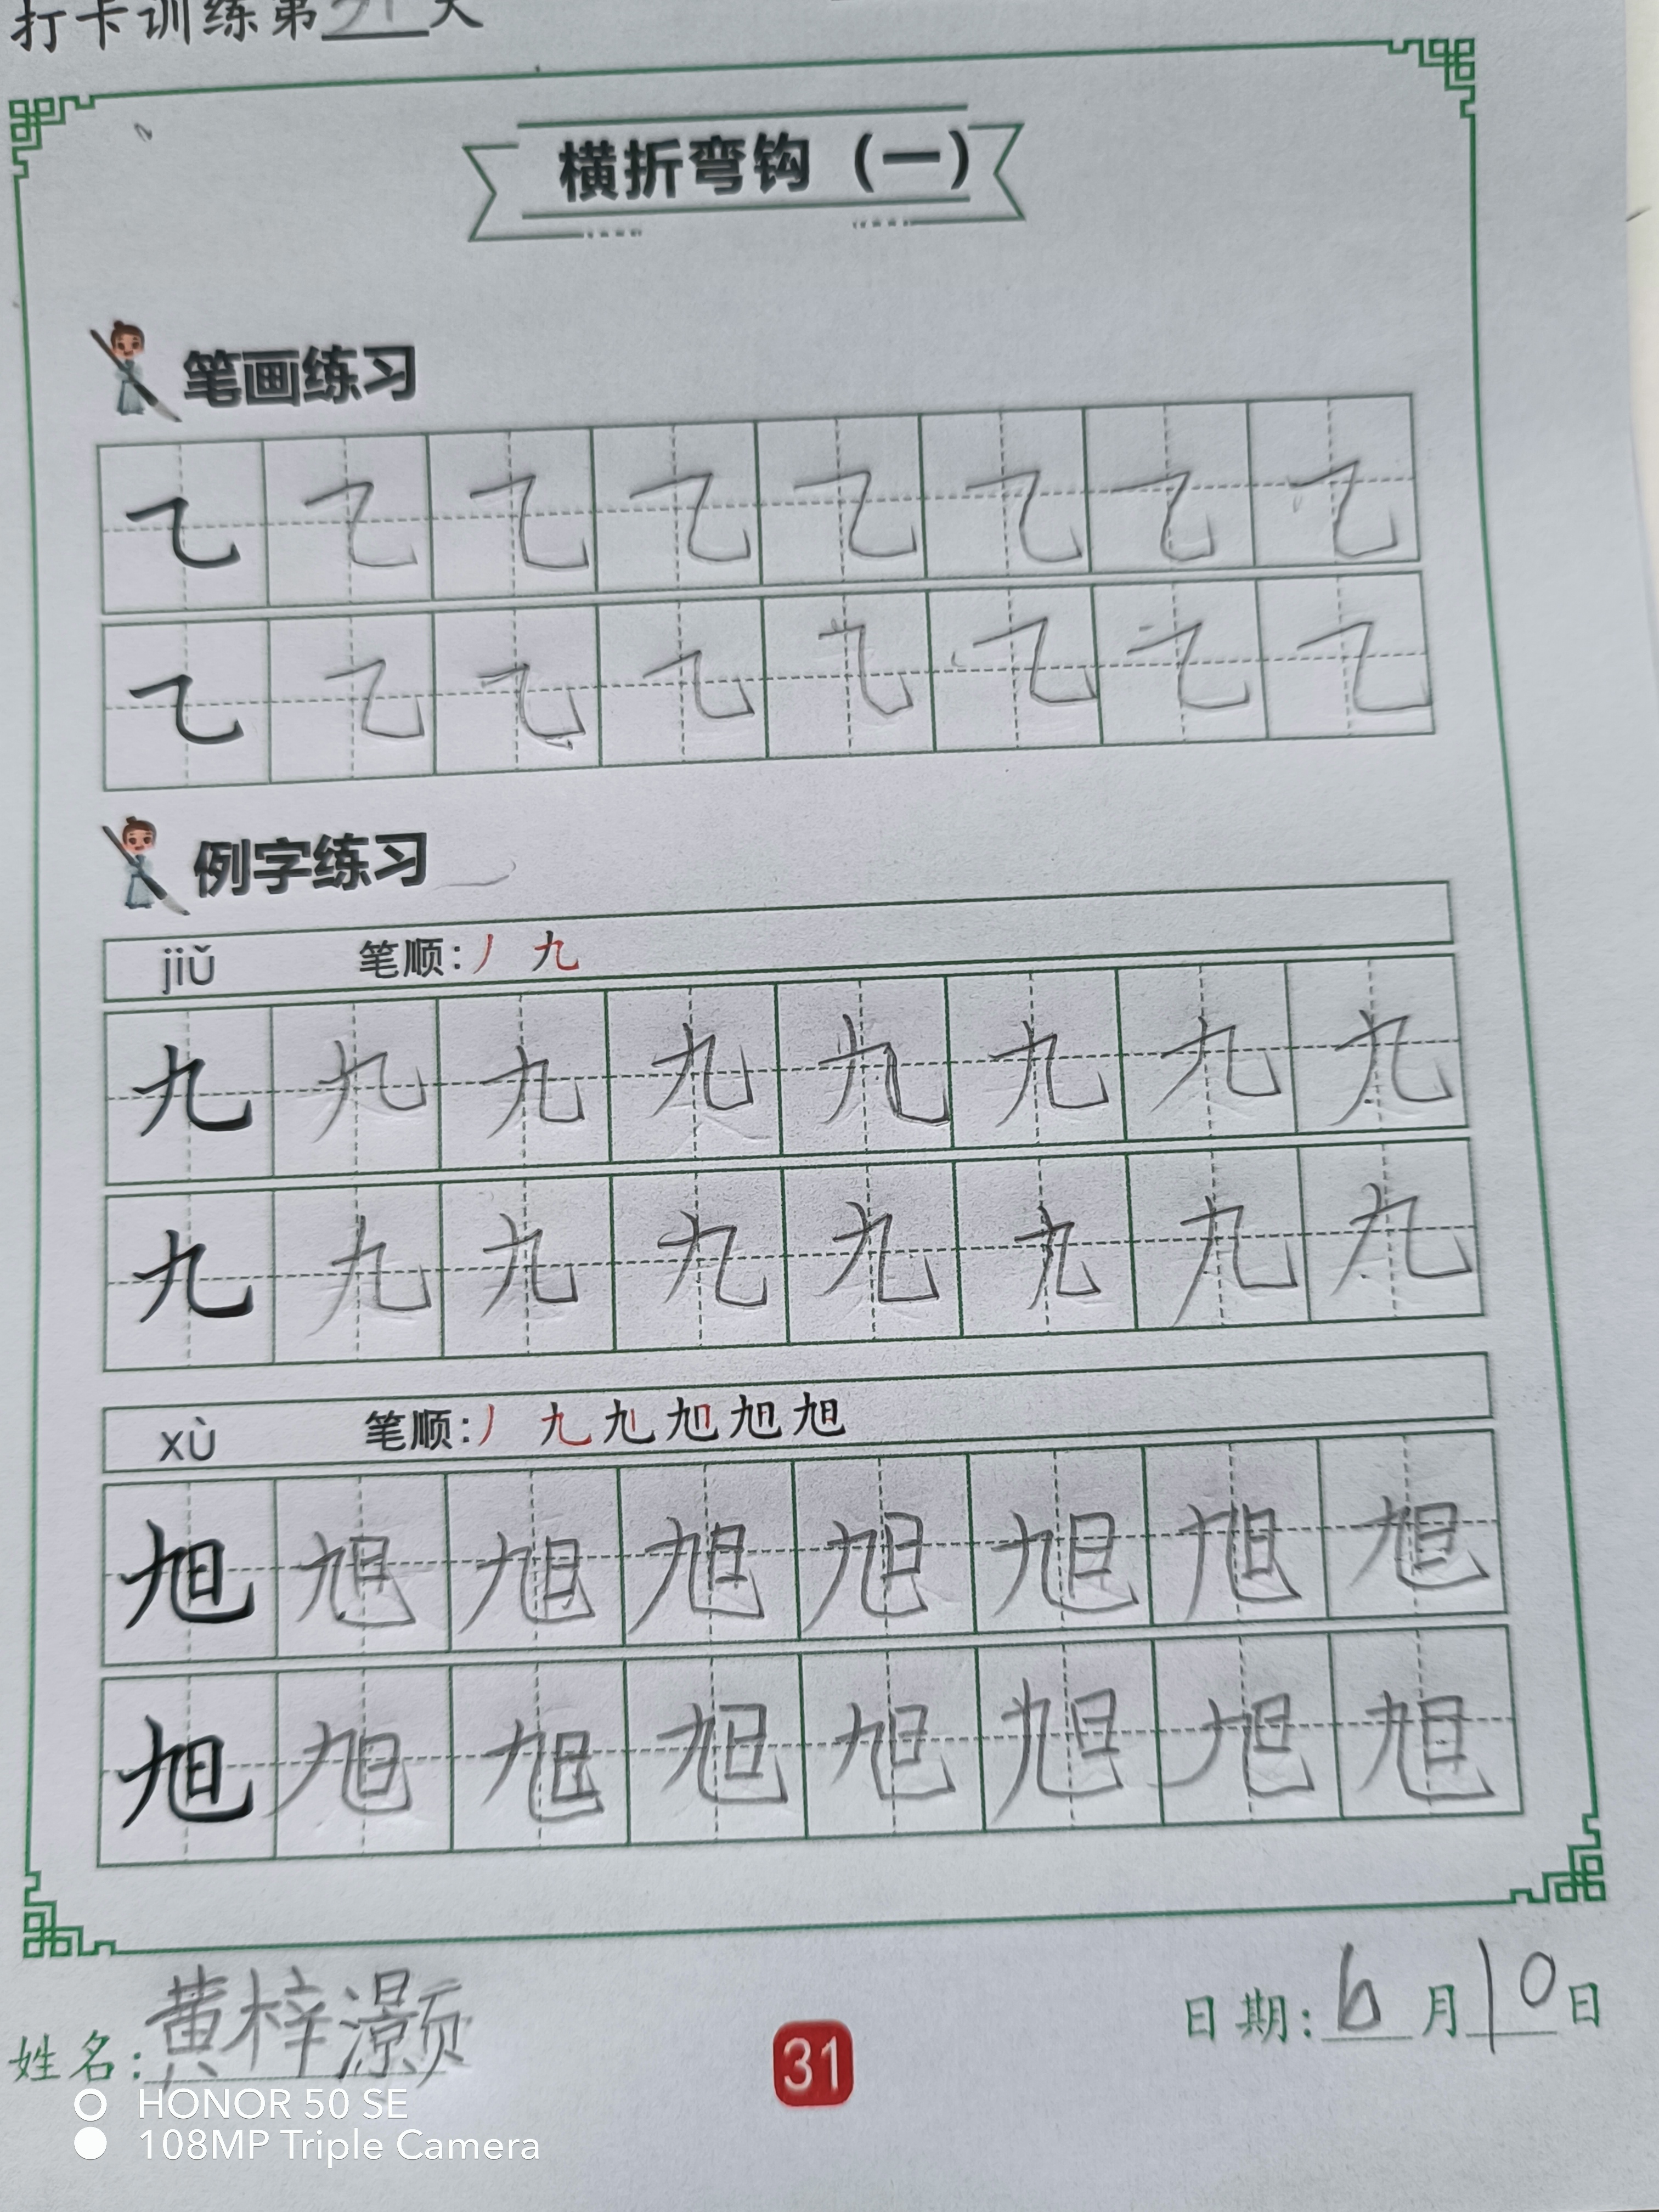 打卡训练第31天
横折弯钩（一）
笔画练习
㇈ ㇈ ㇈ ㇈ ㇈ ㇈ ㇈ ㇈
㇈ ㇈ ㇈ ㇈ ㇈ ㇈ ㇈ ㇈
例字练习
jiǔ 笔顺：丿 九
九 九 九 九 九 九 九 九
九 九 九 九 九 九 九 九
xù 笔顺：丿 九 旭 旭 旭 旭
旭 旭 旭 旭 旭 旭 旭 旭
旭 旭 旭 旭 旭 旭 旭 旭
姓名：黄梓灏 31 日期：6月10日
HONOR 50 SE
108MP Triple Camera